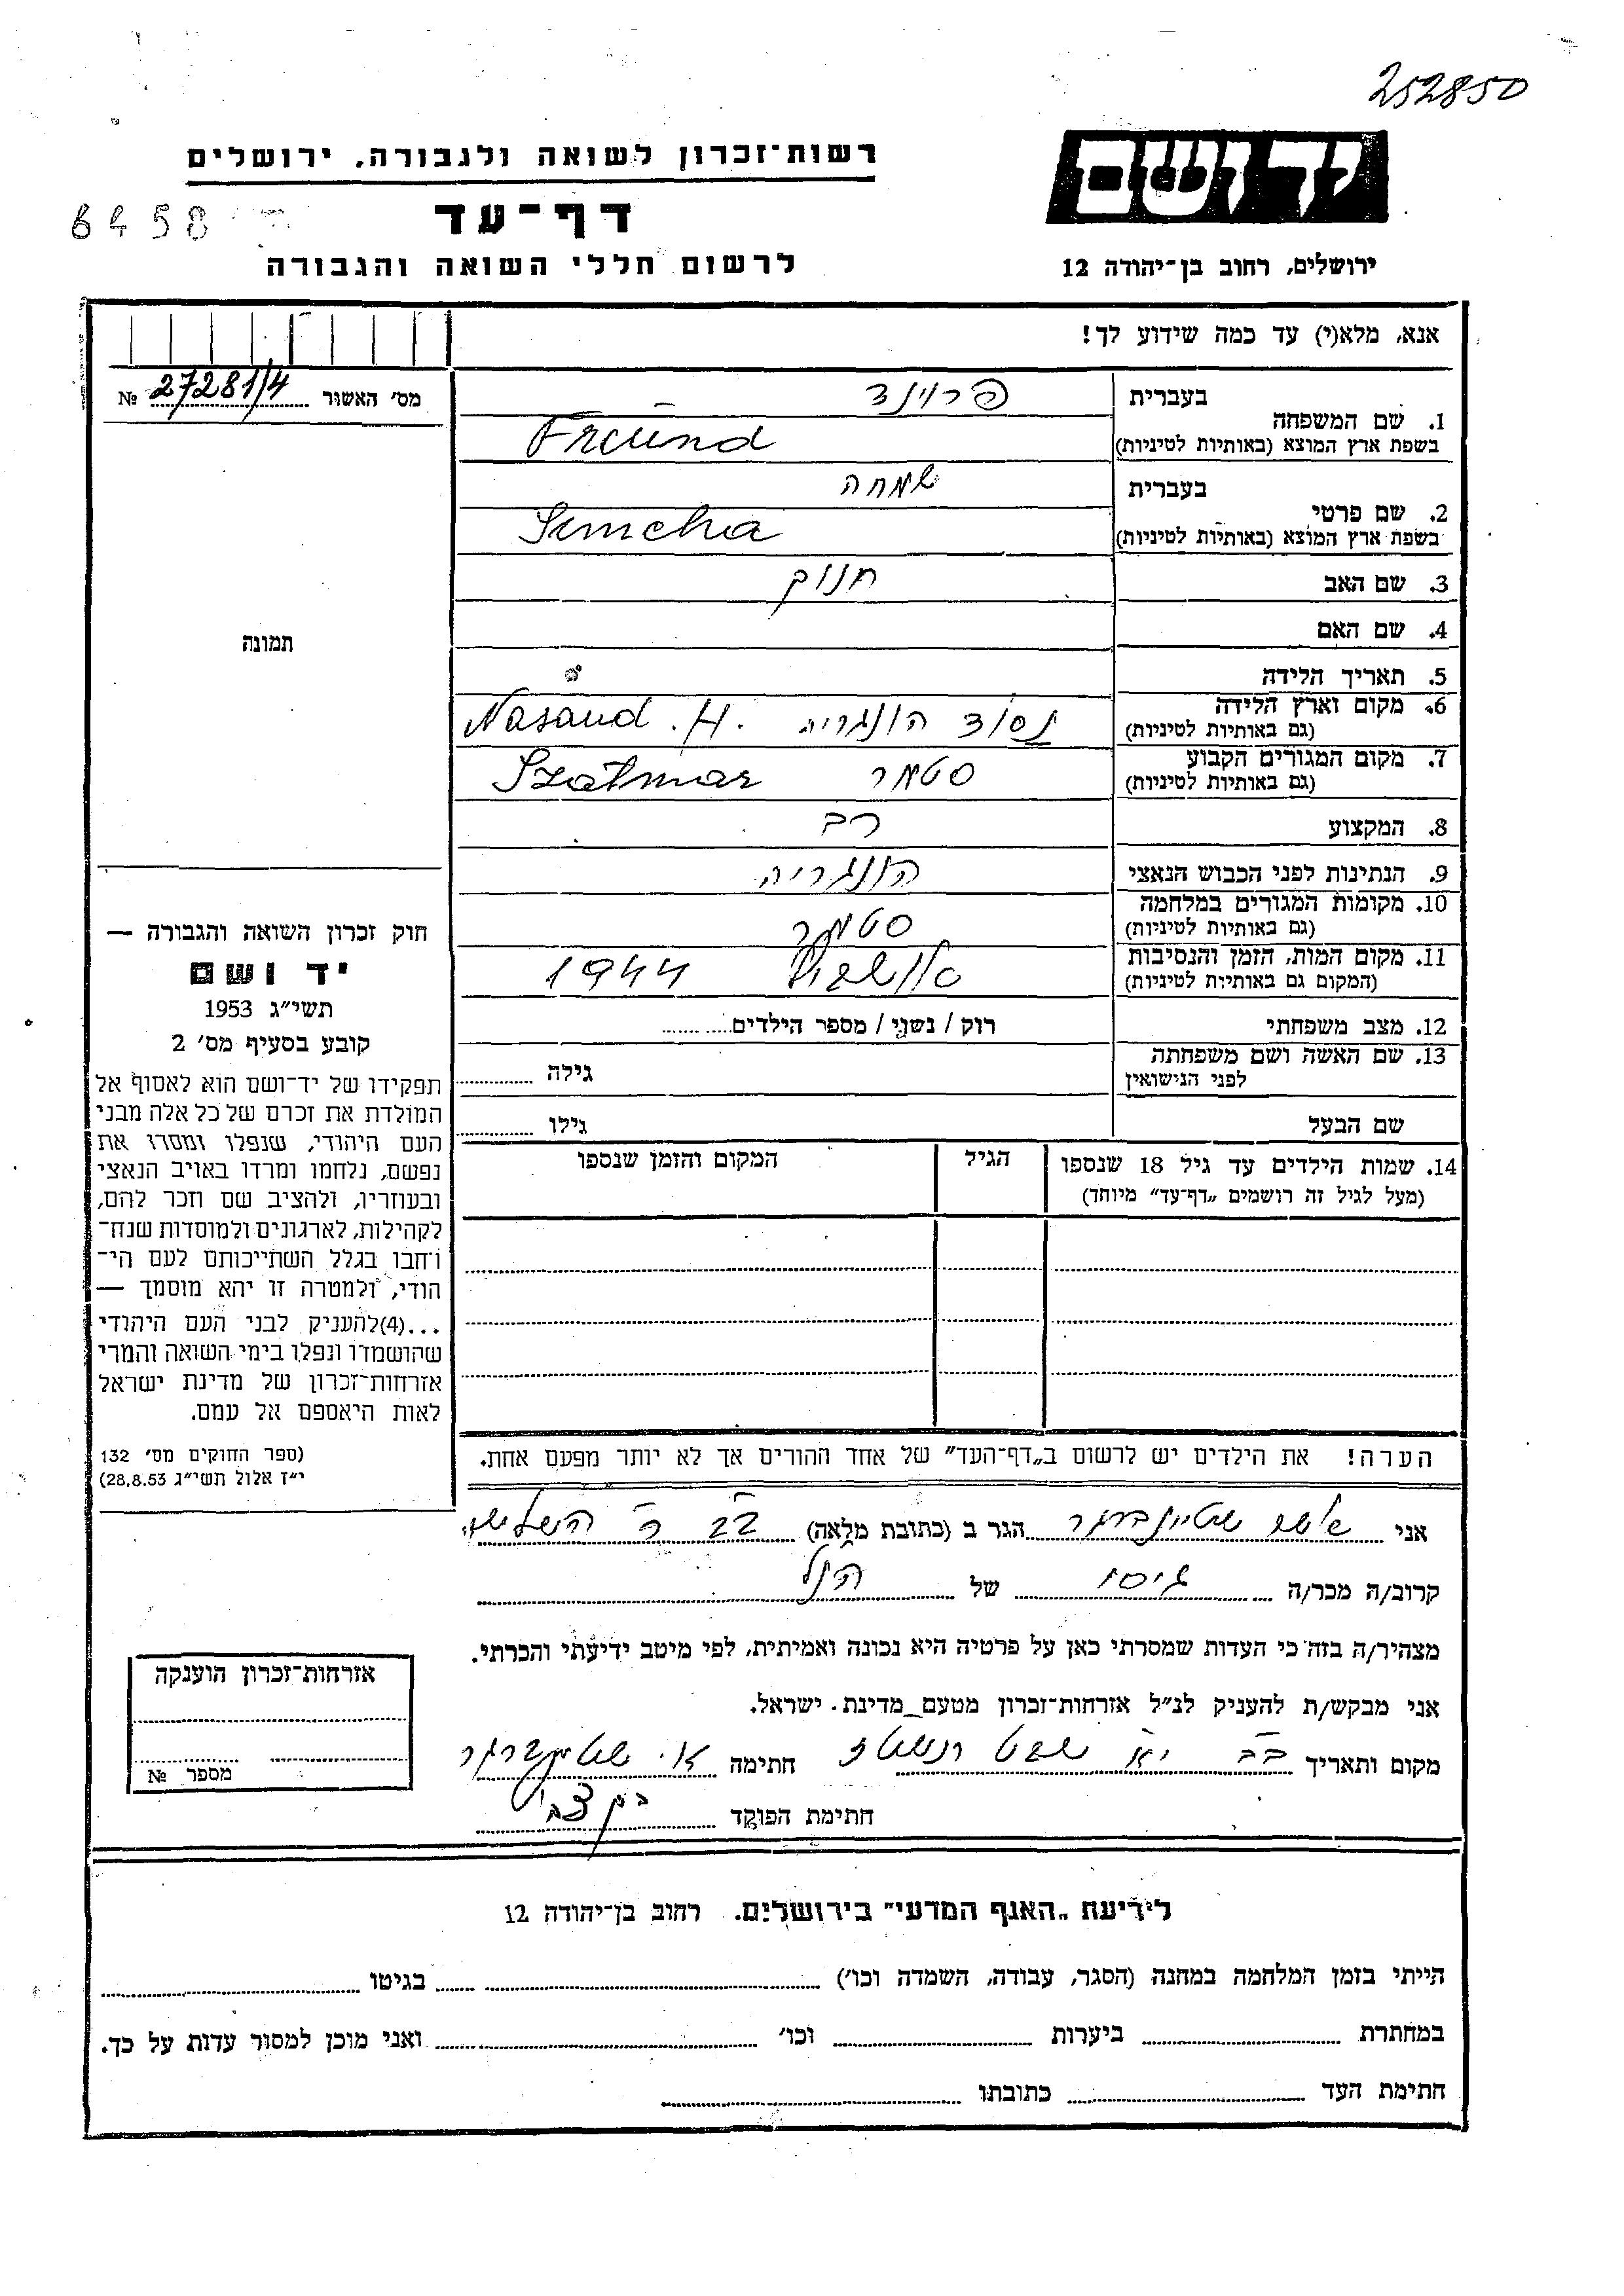 252850
יד ושם
רשות־זכרון לשואה ולגבורה, ירושלים
6458
דף־עד
ירושלים, רחוב בן־יהודה 12
לרשום חללי השואה והגבורה
אנא, מלא(י) עד כמה שידוע לך!
מס׳ האשור 27281/4 №
בעברית פרוינד
1. שם המשפחה
בשפת ארץ המוצא (באותיות לטיניות) Freund
בעברית שמחה
2. שם פרטי
בשפת ארץ המוצא (באותיות לטיניות) Simcha
3. שם האב חנוך
4. שם האם
תמונה
5. תאריך הלידה
6. מקום וארץ הלידה נסוד הונגריה Nasaud .H.
(גם באותיות לטיניות)
7. מקום המגורים הקבוע סטמר Szatmar
(גם באותיות לטיניות)
8. המקצוע רב
9. הנתינות לפני הכבוש הנאצי הונגריה
10. מקומות המגורים במלחמה סטמר
(גם באותיות לטיניות)
11. מקום המות, הזמן והנסיבות 1944
(המקום גם באותיות לטיניות)
12. מצב משפחתי רוק / נשוי / מספר הילדים
13. שם האשה ושם משפחתה
לפני הנישואין גילה
שם הבעל גילו
14. שמות הילדים עד גיל 18 שנספו הגיל המקום והזמן שנספו
(מעל לגיל זה רושמים „דף־עד״ מיוחד)
חוק זכרון השואה והגבורה —
יד ושם
תשי״ג 1953
קובע בסעיף מס׳ 2
תפקידו של יד־ושם הוא לאסוף אל
המולדת את זכרם של כל אלה מבני
העם היהודי, שנפלו ומסרו את
נפשם, נלחמו ומרדו באויב הנאצי
ובעוזריו, ולהציב שם וזכר להם,
לקהילות, לארגונים ולמוסדות שנח־
רבו בגלל השתייכותם לעם הי־
הודי, ולמטרה זו יהא מוסמך —
...(4)להעניק לבני העם היהודי
שהושמדו ונפלו בימי השואה והמרי
אזרחות־זכרון של מדינת ישראל
לאות היאספם אל עמם.
(ספר החוקים מס׳ 132
י״ז אלול תשי״ג 28.8.53)
הערה! את הילדים יש לרשום ב„דף־העד״ של אחד ההורים אך לא יותר מפעם אחת.
אני שטיינברגר הגר ב (כתובת מלאה) בב ר השלישי
קרוב/ה מכר/ה גיסו של הנ״ל
מצהיר/ה בזה כי העדות שמסרתי כאן על פרטיה היא נכונה ואמיתית, לפי מיטב ידיעתי והכרתי.
אני מבקש/ת להעניק לנ״ל אזרחות־זכרון מטעם מדינת ישראל.
מקום ותאריך בב יא שבט תשטז חתימה א. שטינברגר
חתימת הפוקד
אזרחות־זכרון הוענקה
מספר №
לידיעת „האגף המדעי״ בירושלים. רחוב בן־יהודה 12
הייתי בזמן המלחמה במחנה (הסגר, עבודה, השמדה וכו׳) בגיטו
במחתרת ביערות וכו׳ ואני מוכן למסור עדות על כך.
חתימת העד כתובתו